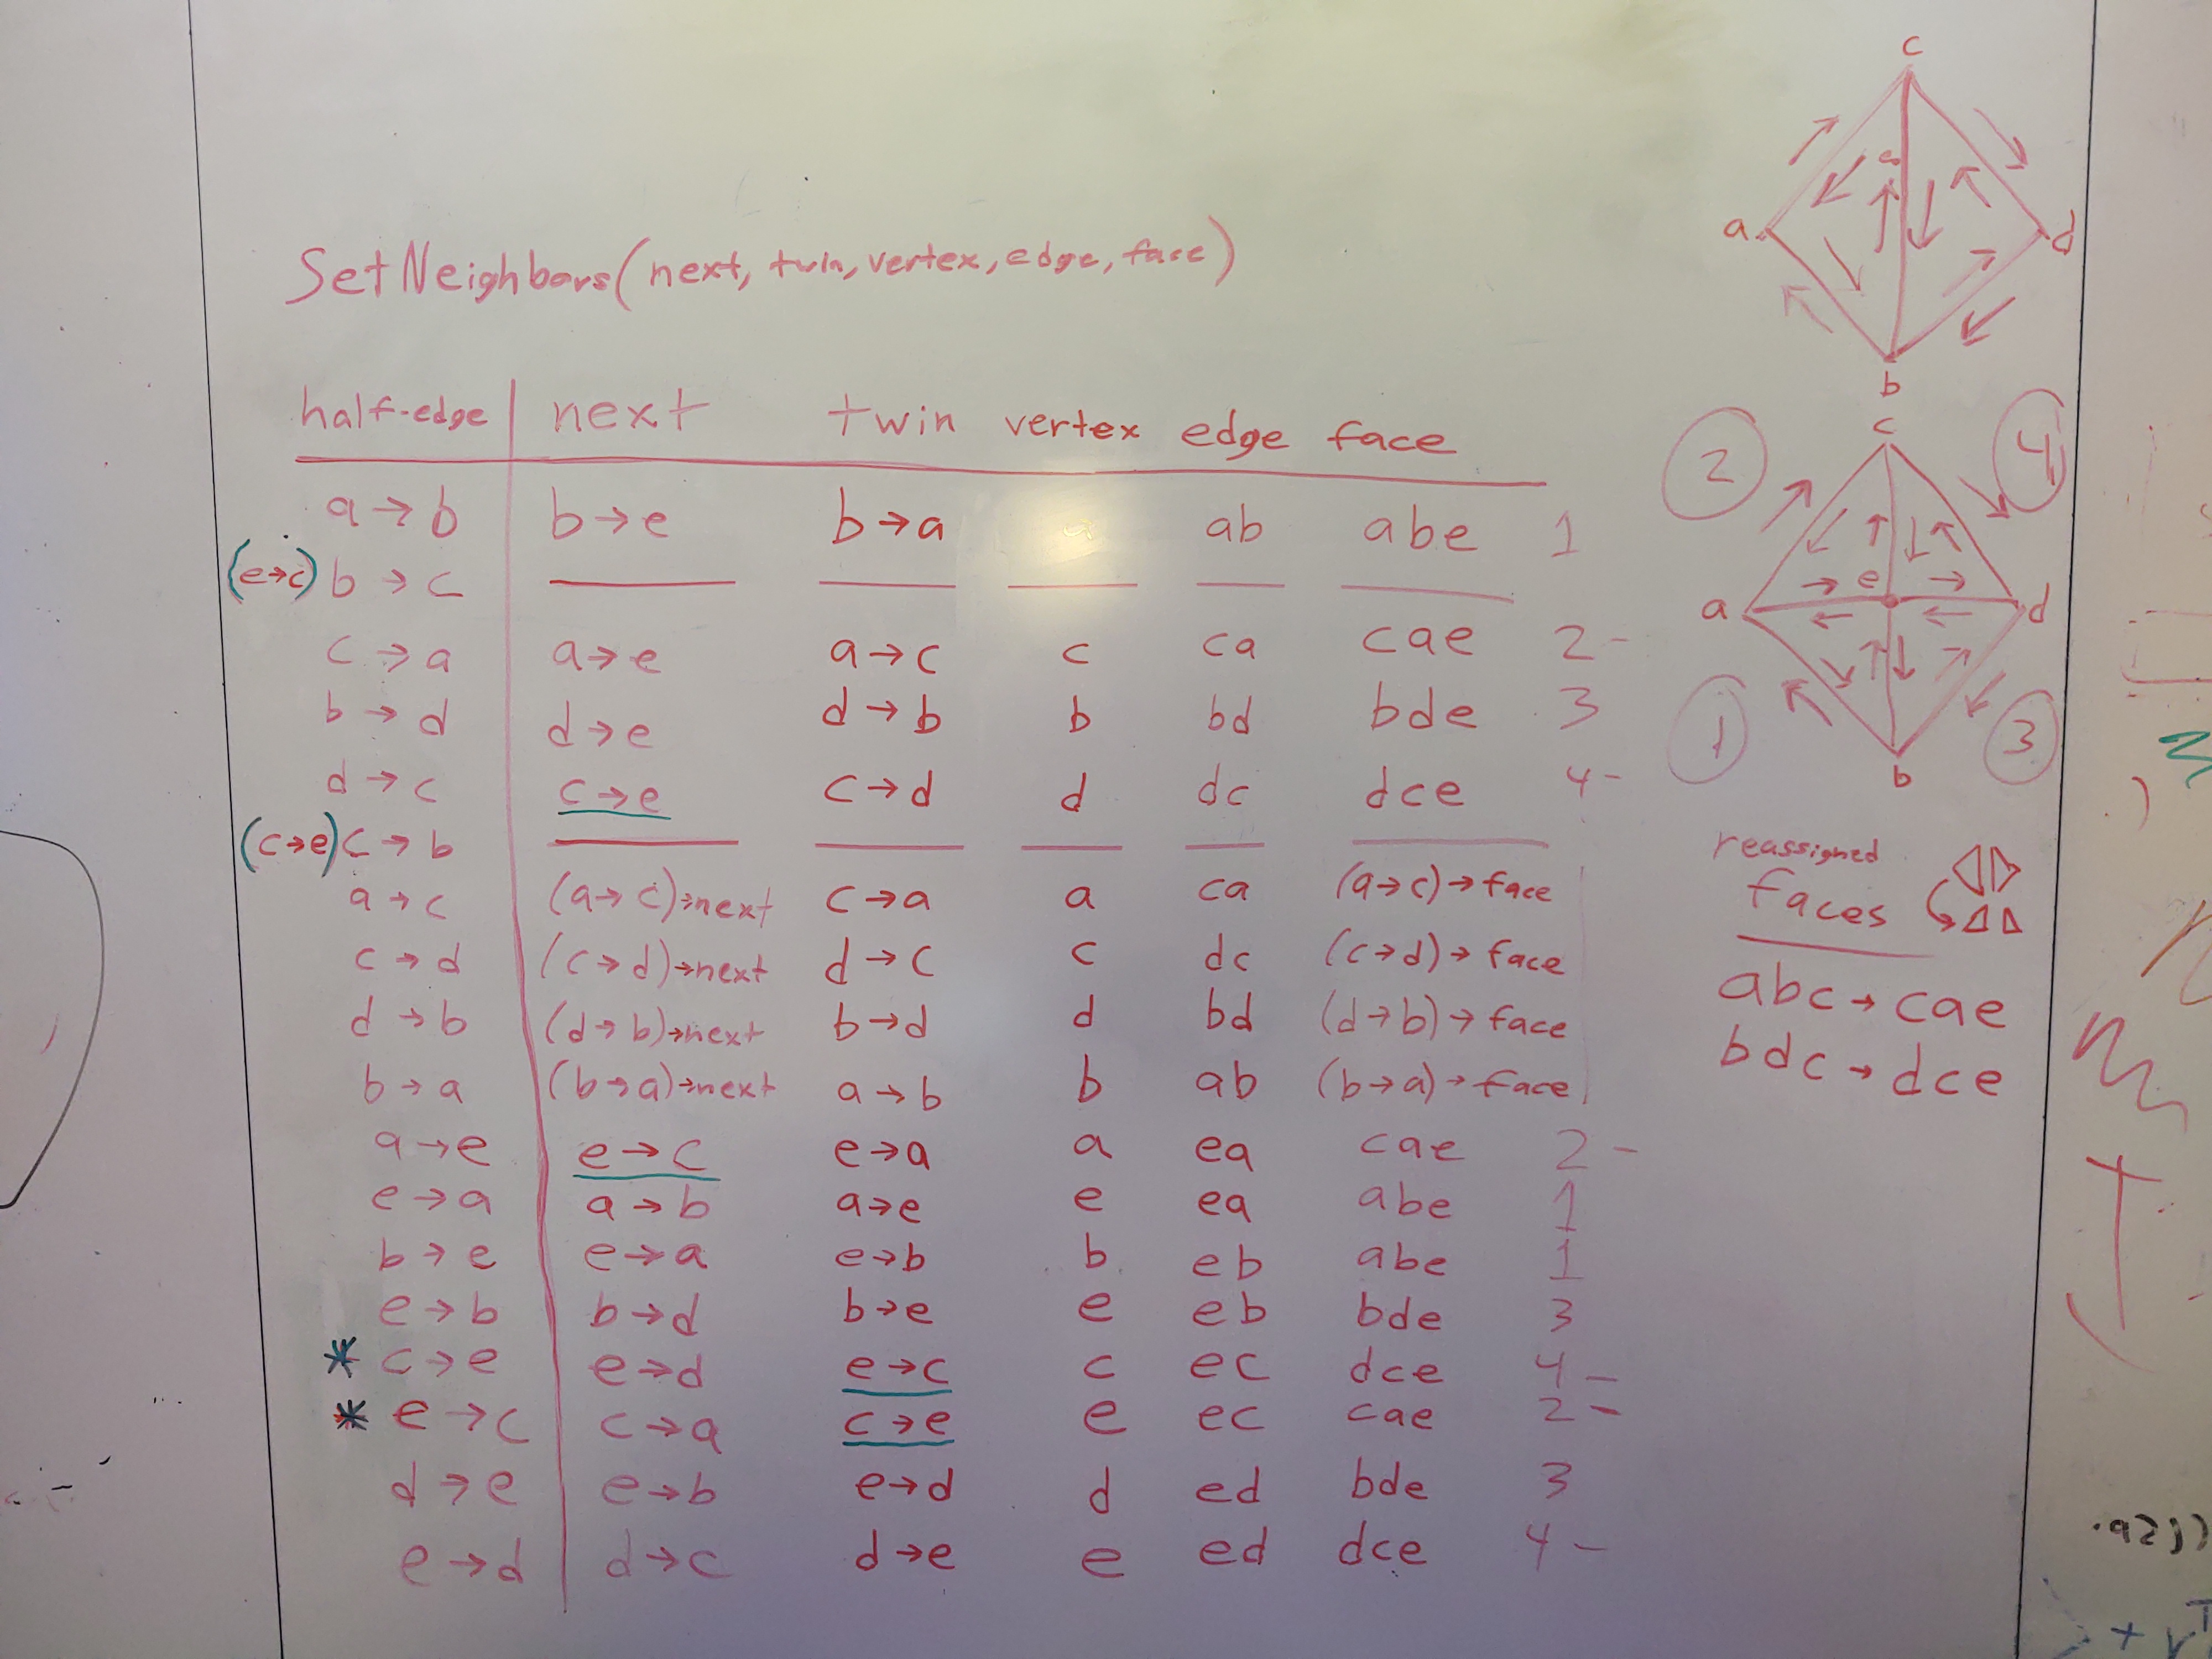 SetNeighbors(next, twin, vertex, edge, face)
half-edge next twin vertex edge face
a→b b→e b→a a ab abe 1
(e→c) b→c
c→a a→e a→c c ca cae 2 -
b→d d→e d→b b bd bde 3
d→c c→e c→d d dc dce 4 -
(c→e) c→b
a→c (a→c)→next c→a a ca (a→c)→face
c→d (c→d)→next d→c c dc (c→d)→face
d→b (d→b)→next b→d d bd (d→b)→face
b→a (b→a)→next a→b b ab (b→a)→face
a→e e→c e→a a ea cae 2 -
e→a a→b a→e e ea abe 1
b→e e→a e→b b eb abe 1
e→b b→d b→e e eb bde 3
* c→e e→d e→c c ec dce 4 -
* e→c c→a c→e e ec cae 2 -
d→e e→b e→d d ed bde 3
e→d d→c d→e e ed dce 4 -
c
e
a d
b
2 c 4
a e d
1 b 3
reassigned
faces
abc→cae
bdc→dce